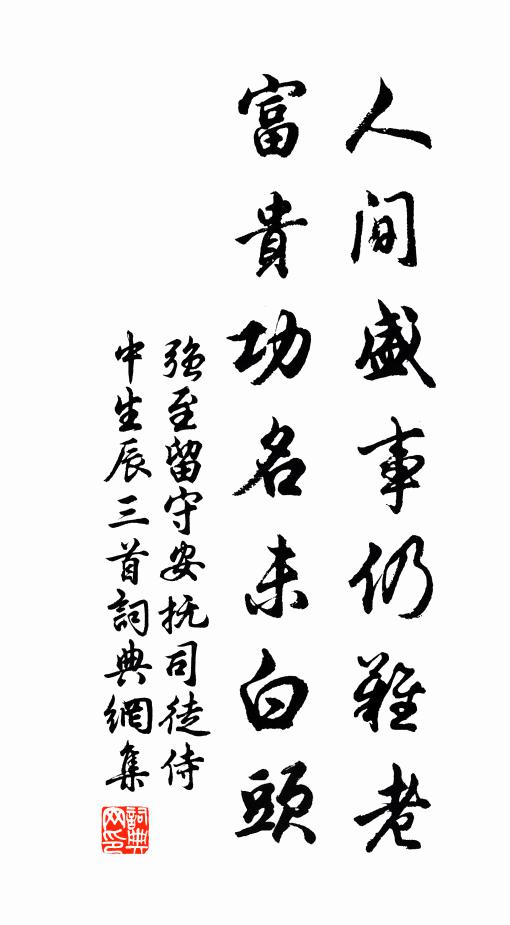 人間盛事仍難老
富貴功名未白頭
強至留守安抚司徒侍
中生辰三首詞典網集
詞典
网印